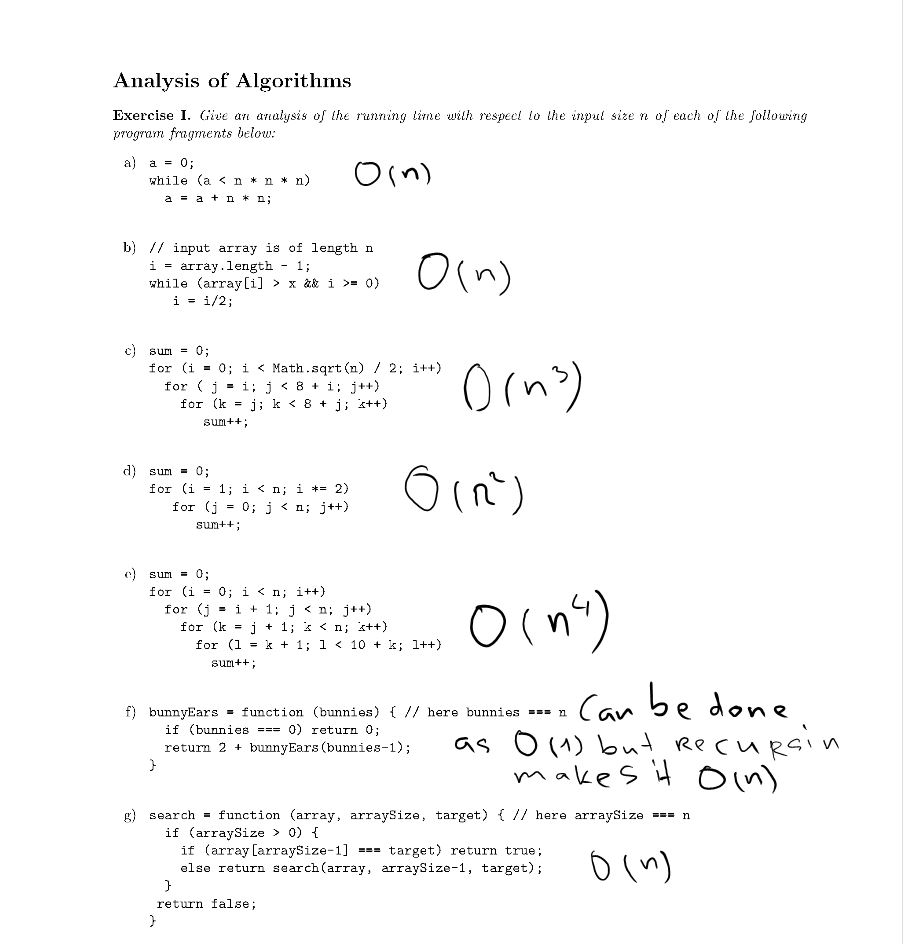 Analysis of Algorithms
Exercise I. Give an analysis of the running time with respect to the input size n of each of the following
program fragments below:
a) a = 0;
while (a < n * n * n)
a = a + n * n;
O(n)
b) // input array is of length n
i = array.length - 1;
while (array[i] > x && i >= 0)
i = i/2;
O(n)
c) sum = 0;
for (i = 0; i < Math.sqrt(n) / 2; i++)
for ( j = i; j < 8 + i; j++)
for (k = j; k < 8 + j; k++)
sum++;
O(n³)
d) sum = 0;
for (i = 1; i < n; i *= 2)
for (j = 0; j < n; j++)
sum++;
O(n²)
e) sum = 0;
for (i = 0; i < n; i++)
for (j = i + 1; j < n; j++)
for (k = j + 1; k < n; k++)
for (l = k + 1; l < 10 + k; l++)
sum++;
O(n⁴)
f) bunnyEars = function (bunnies) { // here bunnies === n
if (bunnies === 0) return 0;
return 2 + bunnyEars(bunnies-1);
}
Can be done
as O(1) but Recursin
makes it O(n)
g) search = function (array, arraySize, target) { // here arraySize === n
if (arraySize > 0) {
if (array[arraySize-1] === target) return true;
else return search(array, arraySize-1, target);
}
return false;
}
O(n)